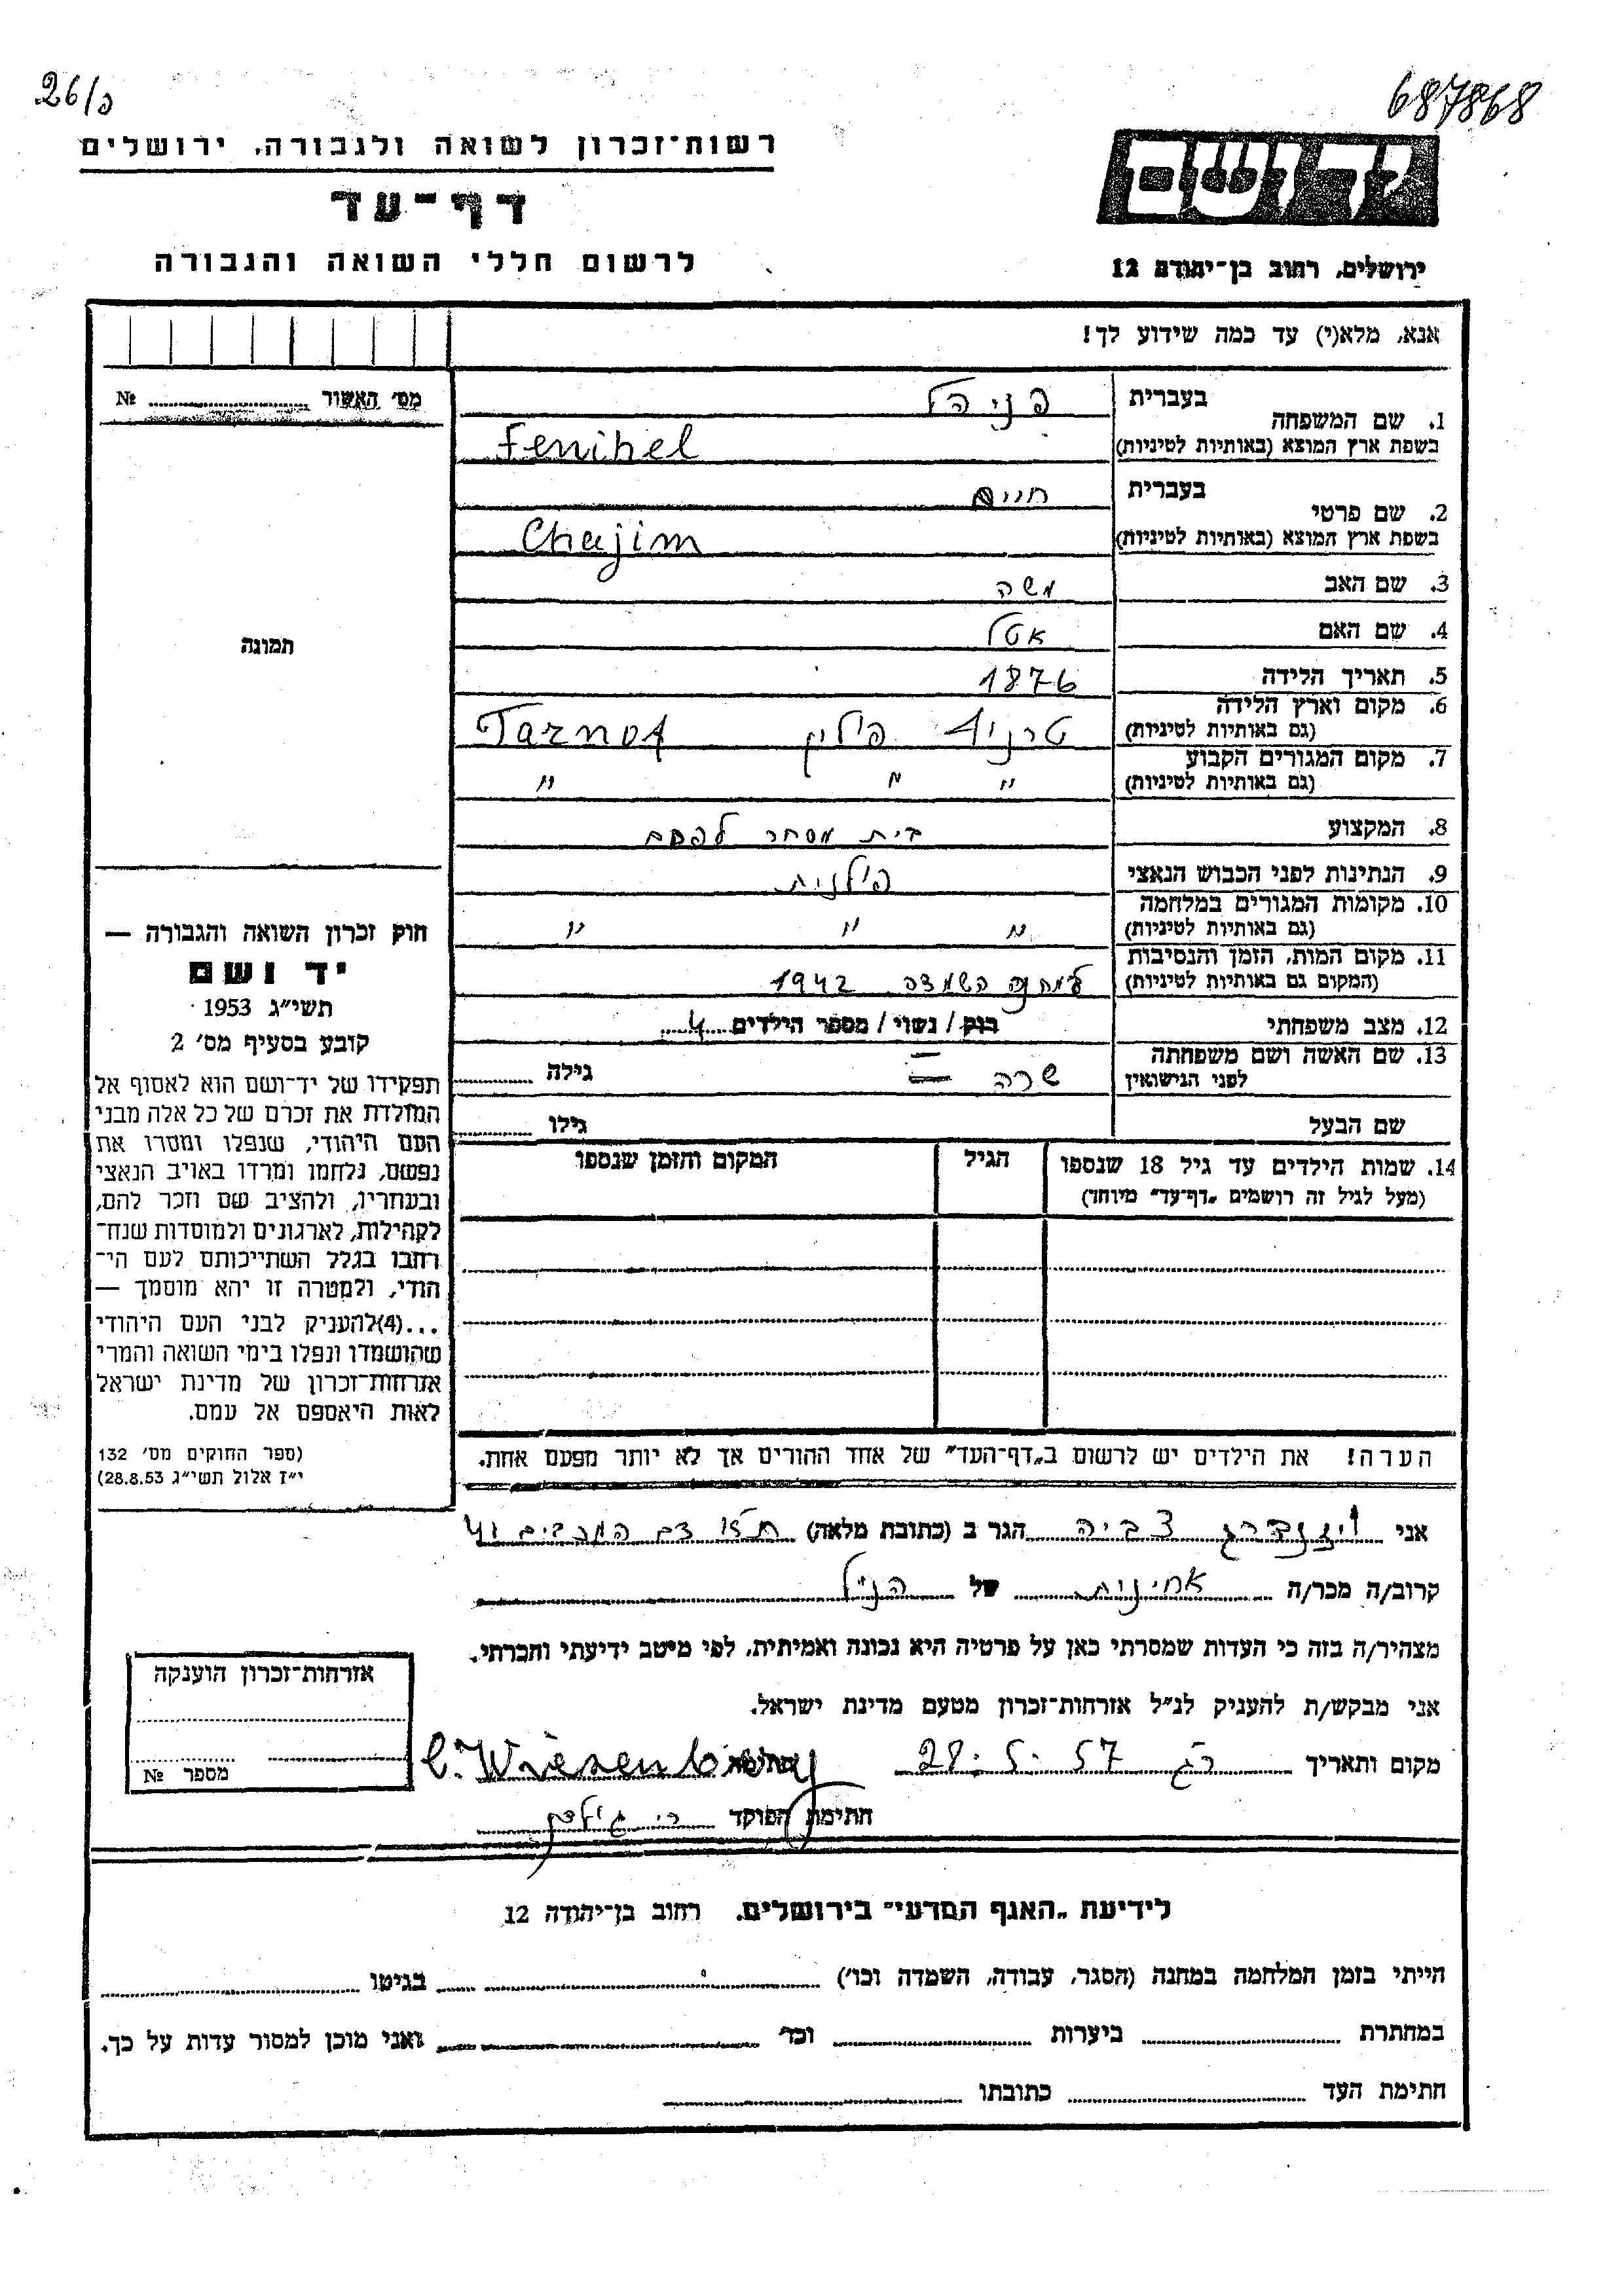 26/פ
687868
יד ושם
רשות־זכרון לשואה ולגבורה, ירושלים
דף־עד
לרשום חללי השואה והגבורה
ירושלים, רחוב בן־יהודה 12
אנא, מלא(י) עד כמה שידוע לך!
מס' האשור № ........
1. שם המשפחה בעברית פניהל
בשפת ארץ המוצא (באותיות לטיניות) Fenihel
2. שם פרטי בעברית חיים
בשפת ארץ המוצא (באותיות לטיניות) Chajim
3. שם האב משה
4. שם האם אטל
5. תאריך הלידה 1876
6. מקום וארץ הלידה (גם באותיות לטיניות) טרנוף פולין Tarnof
7. מקום המגורים הקבוע (גם באותיות לטיניות) " " "
8. המקצוע בית מסחר לפחם
9. הנתינות לפני הכבוש הנאצי פולנית
10. מקומות המגורים במלחמה (גם באותיות לטיניות) " " "
11. מקום המות, הזמן והנסיבות (המקום גם באותיות לטיניות) למחנה השמדה 1942
12. מצב משפחתי רווק / נשוי / מספר הילדים 4
13. שם האשה ושם משפחתה לפני הנישואין שרה = גילה ........
שם הבעל גילו ........
14. שמות הילדים עד גיל 18 שנספו הגיל המקום והזמן שנספו
(מעל לגיל זה רושמים „דף־עד" מיוחד)
הערה! את הילדים יש לרשום ב„דף־העד" של אחד ההורים אך לא יותר מפעם אחת.
תמונה
חוק זכרון השואה והגבורה —
יד ושם
תשי״ג 1953
קובע בסעיף מס' 2
תפקידו של יד־ושם הוא לאסוף אל
המולדת את זכרם של כל אלה מבני
העם היהודי, שנפלו ומסרו את
נפשם, נלחמו ומרדו באויב הנאצי
ובעוזריו, ולהציב שם וזכר להם,
לקהילות, לארגונים ולמוסדות שנח־
רבו בגלל השתייכותם לעם הי־
הודי, ולמטרה זו יהא מוסמך —
...(4)להעניק לבני העם היהודי
שהושמדו ונפלו בימי השואה והמרי
אזרחות־זכרון של מדינת ישראל
לאות היאספם אל עמם.
(ספר החוקים מס' 132
י״ז אלול תשי״ג 28.8.53)
אני ויזנברג צביה הגר ב (כתובת מלאה) המכבים 41
קרוב/ה מכר/ה אחינית של הנ״ל
מצהיר/ה בזה כי העדות שמסרתי כאן על פרטיה היא נכונה ואמיתית, לפי מיטב ידיעתי והכרתי.
אני מבקש/ת להעניק לנ״ל אזרחות־זכרון מטעם מדינת ישראל.
מקום ותאריך רג 28.5.57 חתימה C. Wiesenberg
חתימת הפוקד
אזרחות־זכרון הוענקה
מספר №
לידיעת „האגף המדעי" בירושלים, רחוב בן־יהודה 12
הייתי בזמן המלחמה במחנה (הסגר, עבודה, השמדה וכו') ........ בגיטו ........
במחתרת ........ ביערות ........ וכו' ........ ואני מוכן למסור עדות על כך.
חתימת העד ........ כתובתו ........